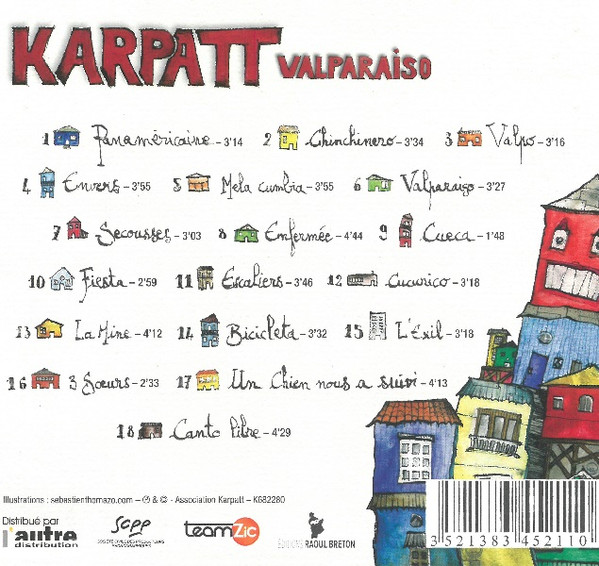 KARPATT VALPARAISO
1 Panaméricaine – 3'14 2 Chinchinero – 3'34 3 Valpo – 3'16
4 Envers – 3'55 5 Mela cumbia – 3'55 6 Valparaiso – 3'27
7 Secousses – 3'03 8 Enfermée – 4'44 9 Cueca – 1'48
10 Fiesta – 2'59 11 Escaliers – 3'46 12 Cucurico – 3'18
13 La Mine – 4'12 14 Bicicleta – 3'32 15 L'Exil – 3'18
16 3 Sœurs – 2'33 17 Un Chien nous a suivi – 4'13
18 Canto libre – 4'29
Illustrations : sebastienthomazo.com – ℗ & © - Association Karpatt – K682280
Distribué par
l'autre
distribution
scpp
teamZic
ÉDITIONS RAOUL BRETON
3 521383 452110